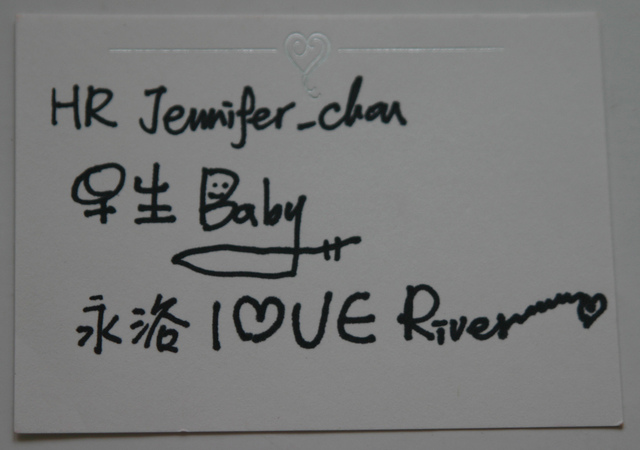 HR Jennifer_chan
早生 Baby
永洛 LOVE River